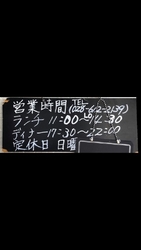 営業時間 TEL (028-612-2139)
ランチ 11:00～14:30
LO
ディナー17:30～22:00
定休日 日曜